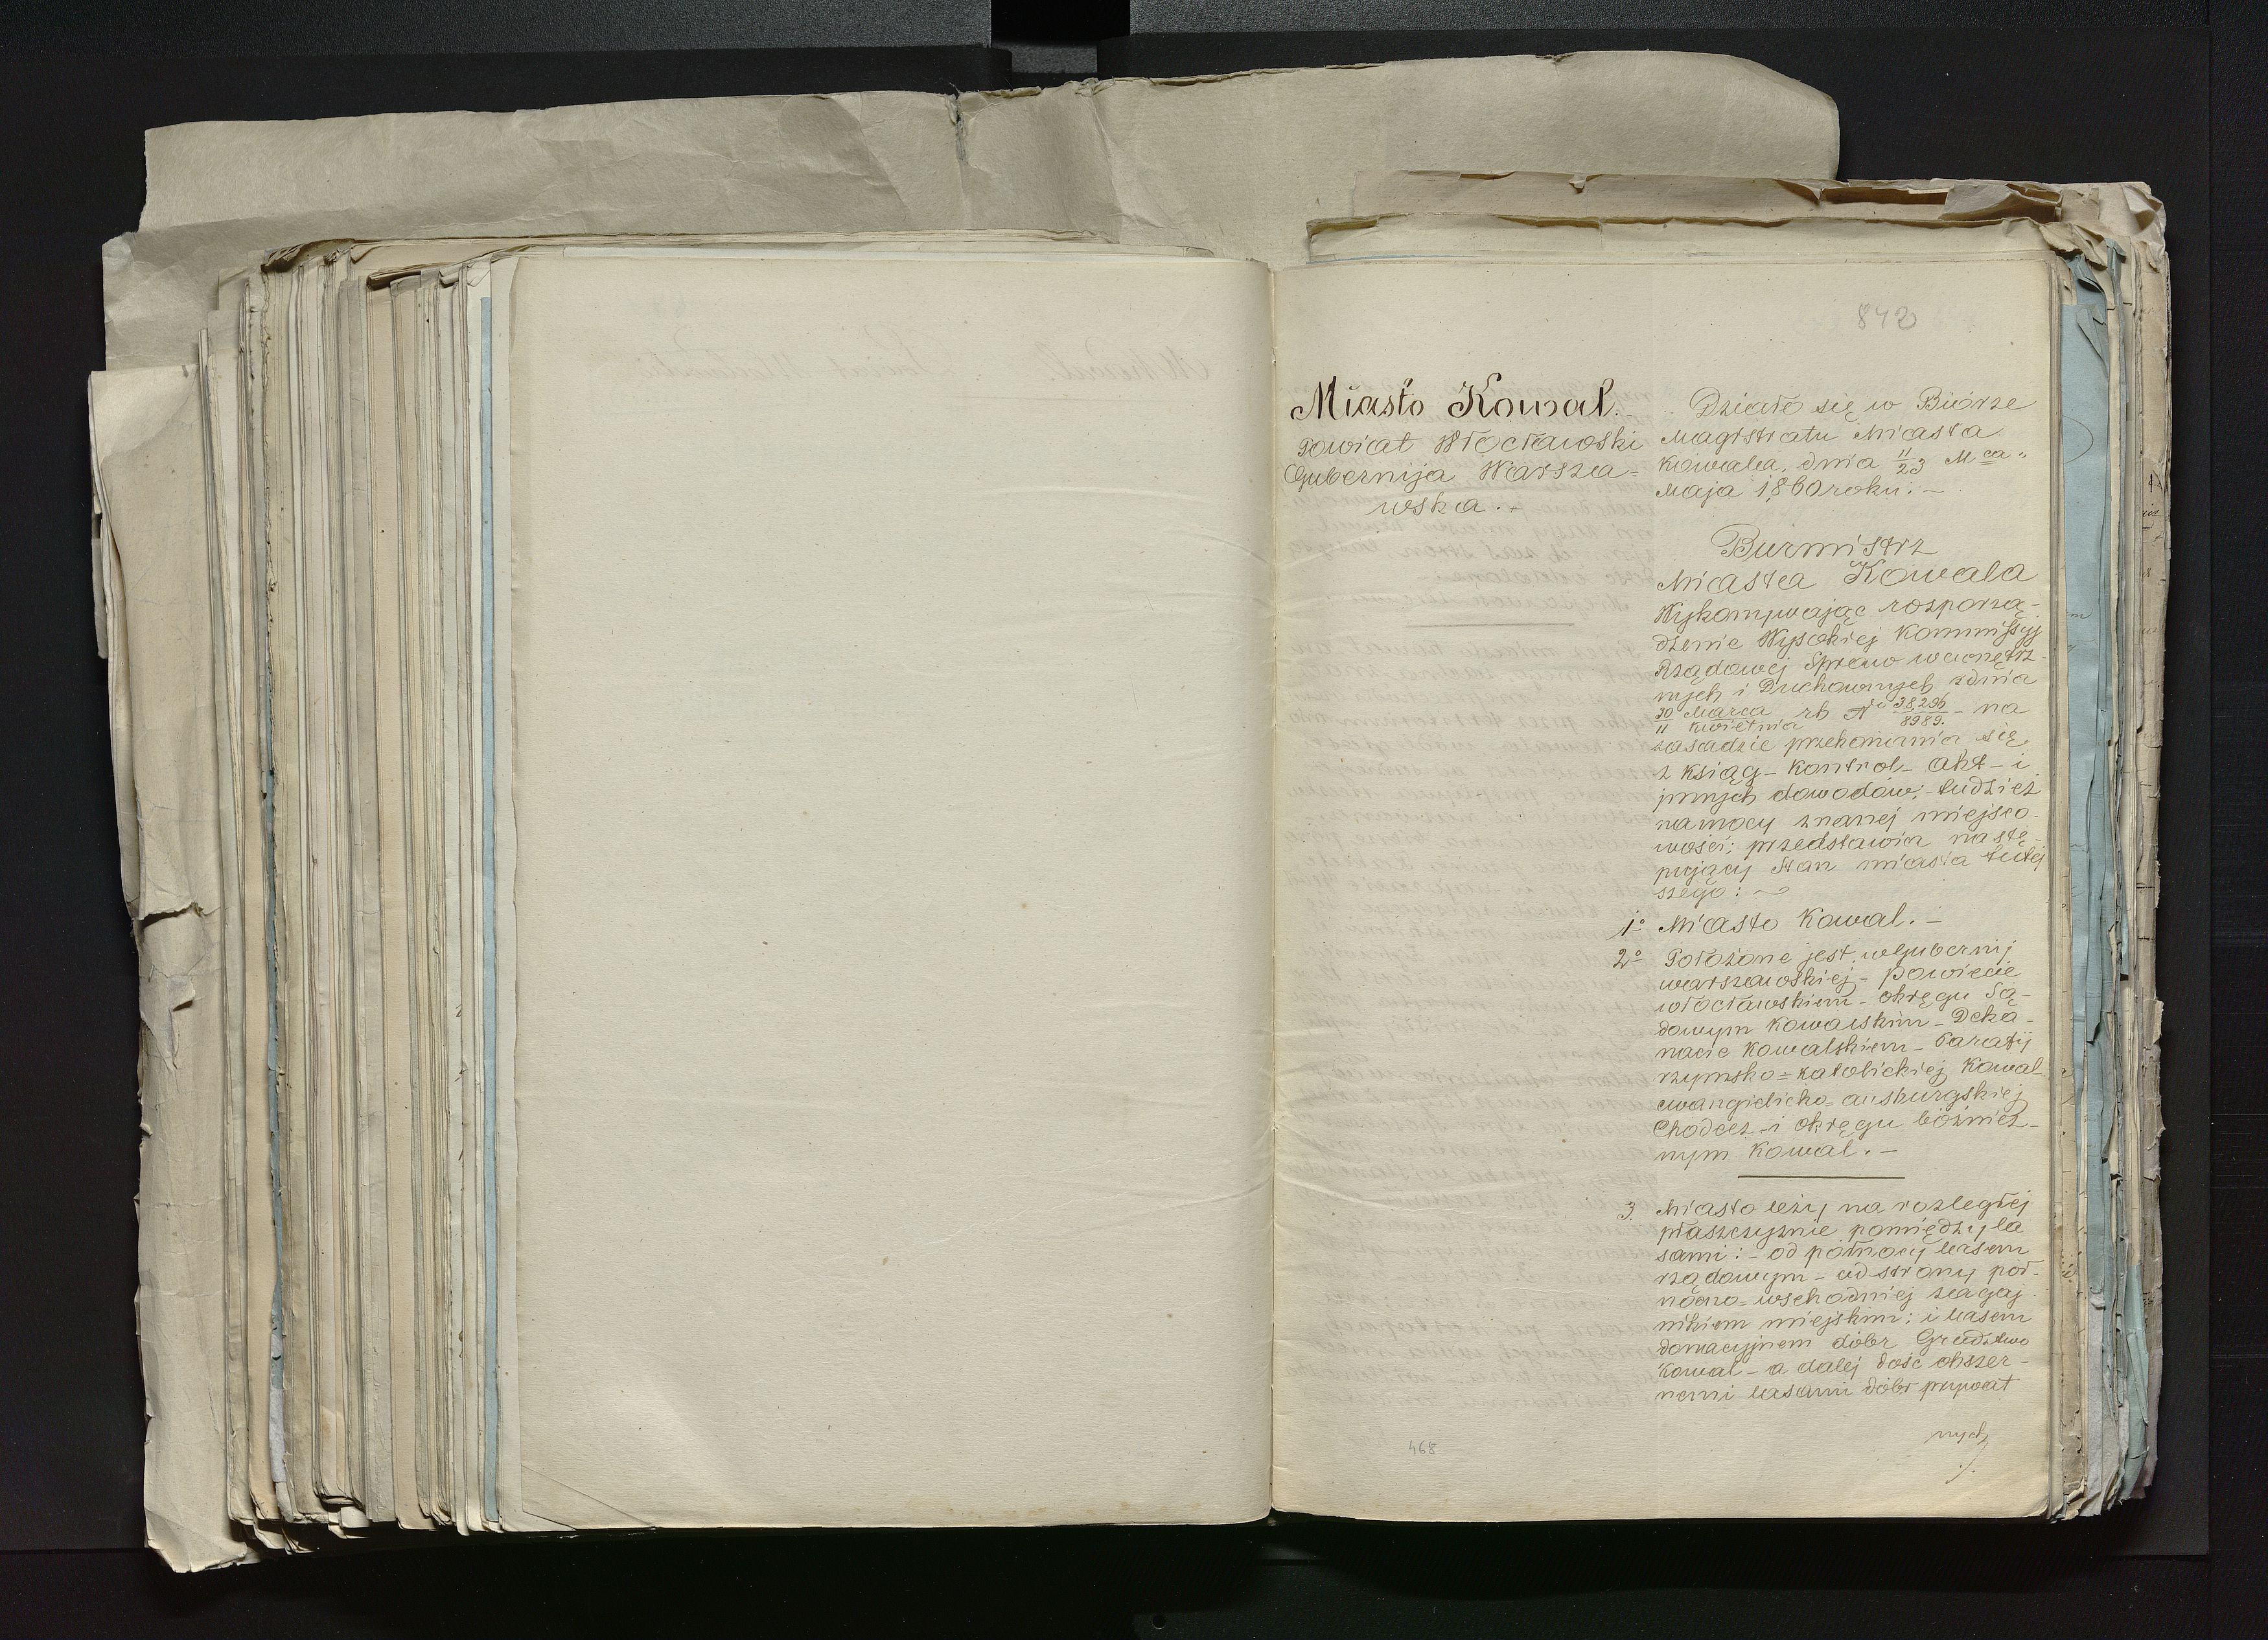 842
Miasto Kowal.
Powiat Włocławski
Gubernija Warsza=
wska.
Działo się w Biórze
Magistratu Miasta
Kowala, dnia 11/23 Mca
Maja 1860 roku.
Burmistrz
Miasta Kowala
Wykonywając rozporzą-
dzenie Wysokiej Kommissyj
Rządowej Spraw wewnętrz-
nych i Duchownych zdnia
30 Marca/11 Kwietnia rb No 38296/8989. na
zasadzie przekonania się
z ksiąg - kontrol - akt - i
jnnych dowodów; - tudzież
na mocy znanej miejsco-
wości; przedstawia nastę-
pujący Stan miasta tutej
szego:
1o Miasto Kowal. -
2o Położone jest w Gubernij
warszawskiej - powiecie
włocławskim - okręgu Są-
dowym Kowalskim - Deka-
nacie Kowalskiem - Parafij
rzymsko=katolickiej Kowal
ewangielicko=ausburgskiej
Chodecz - i okręgu bóżnicz-
nym Kowal. -
3. Miasto leży na rozległej
płaszczyznie pomiędzy la
sami: - od północy lasem
rządowym - od strony pół-
nocno=wschodniej zagaj-
nikiem miejskim; i lasem
donacyjnem dóbr Grodztwo
Kowal - a dalej dość obszer-
nemi lasami dóbr prywat
nych
468